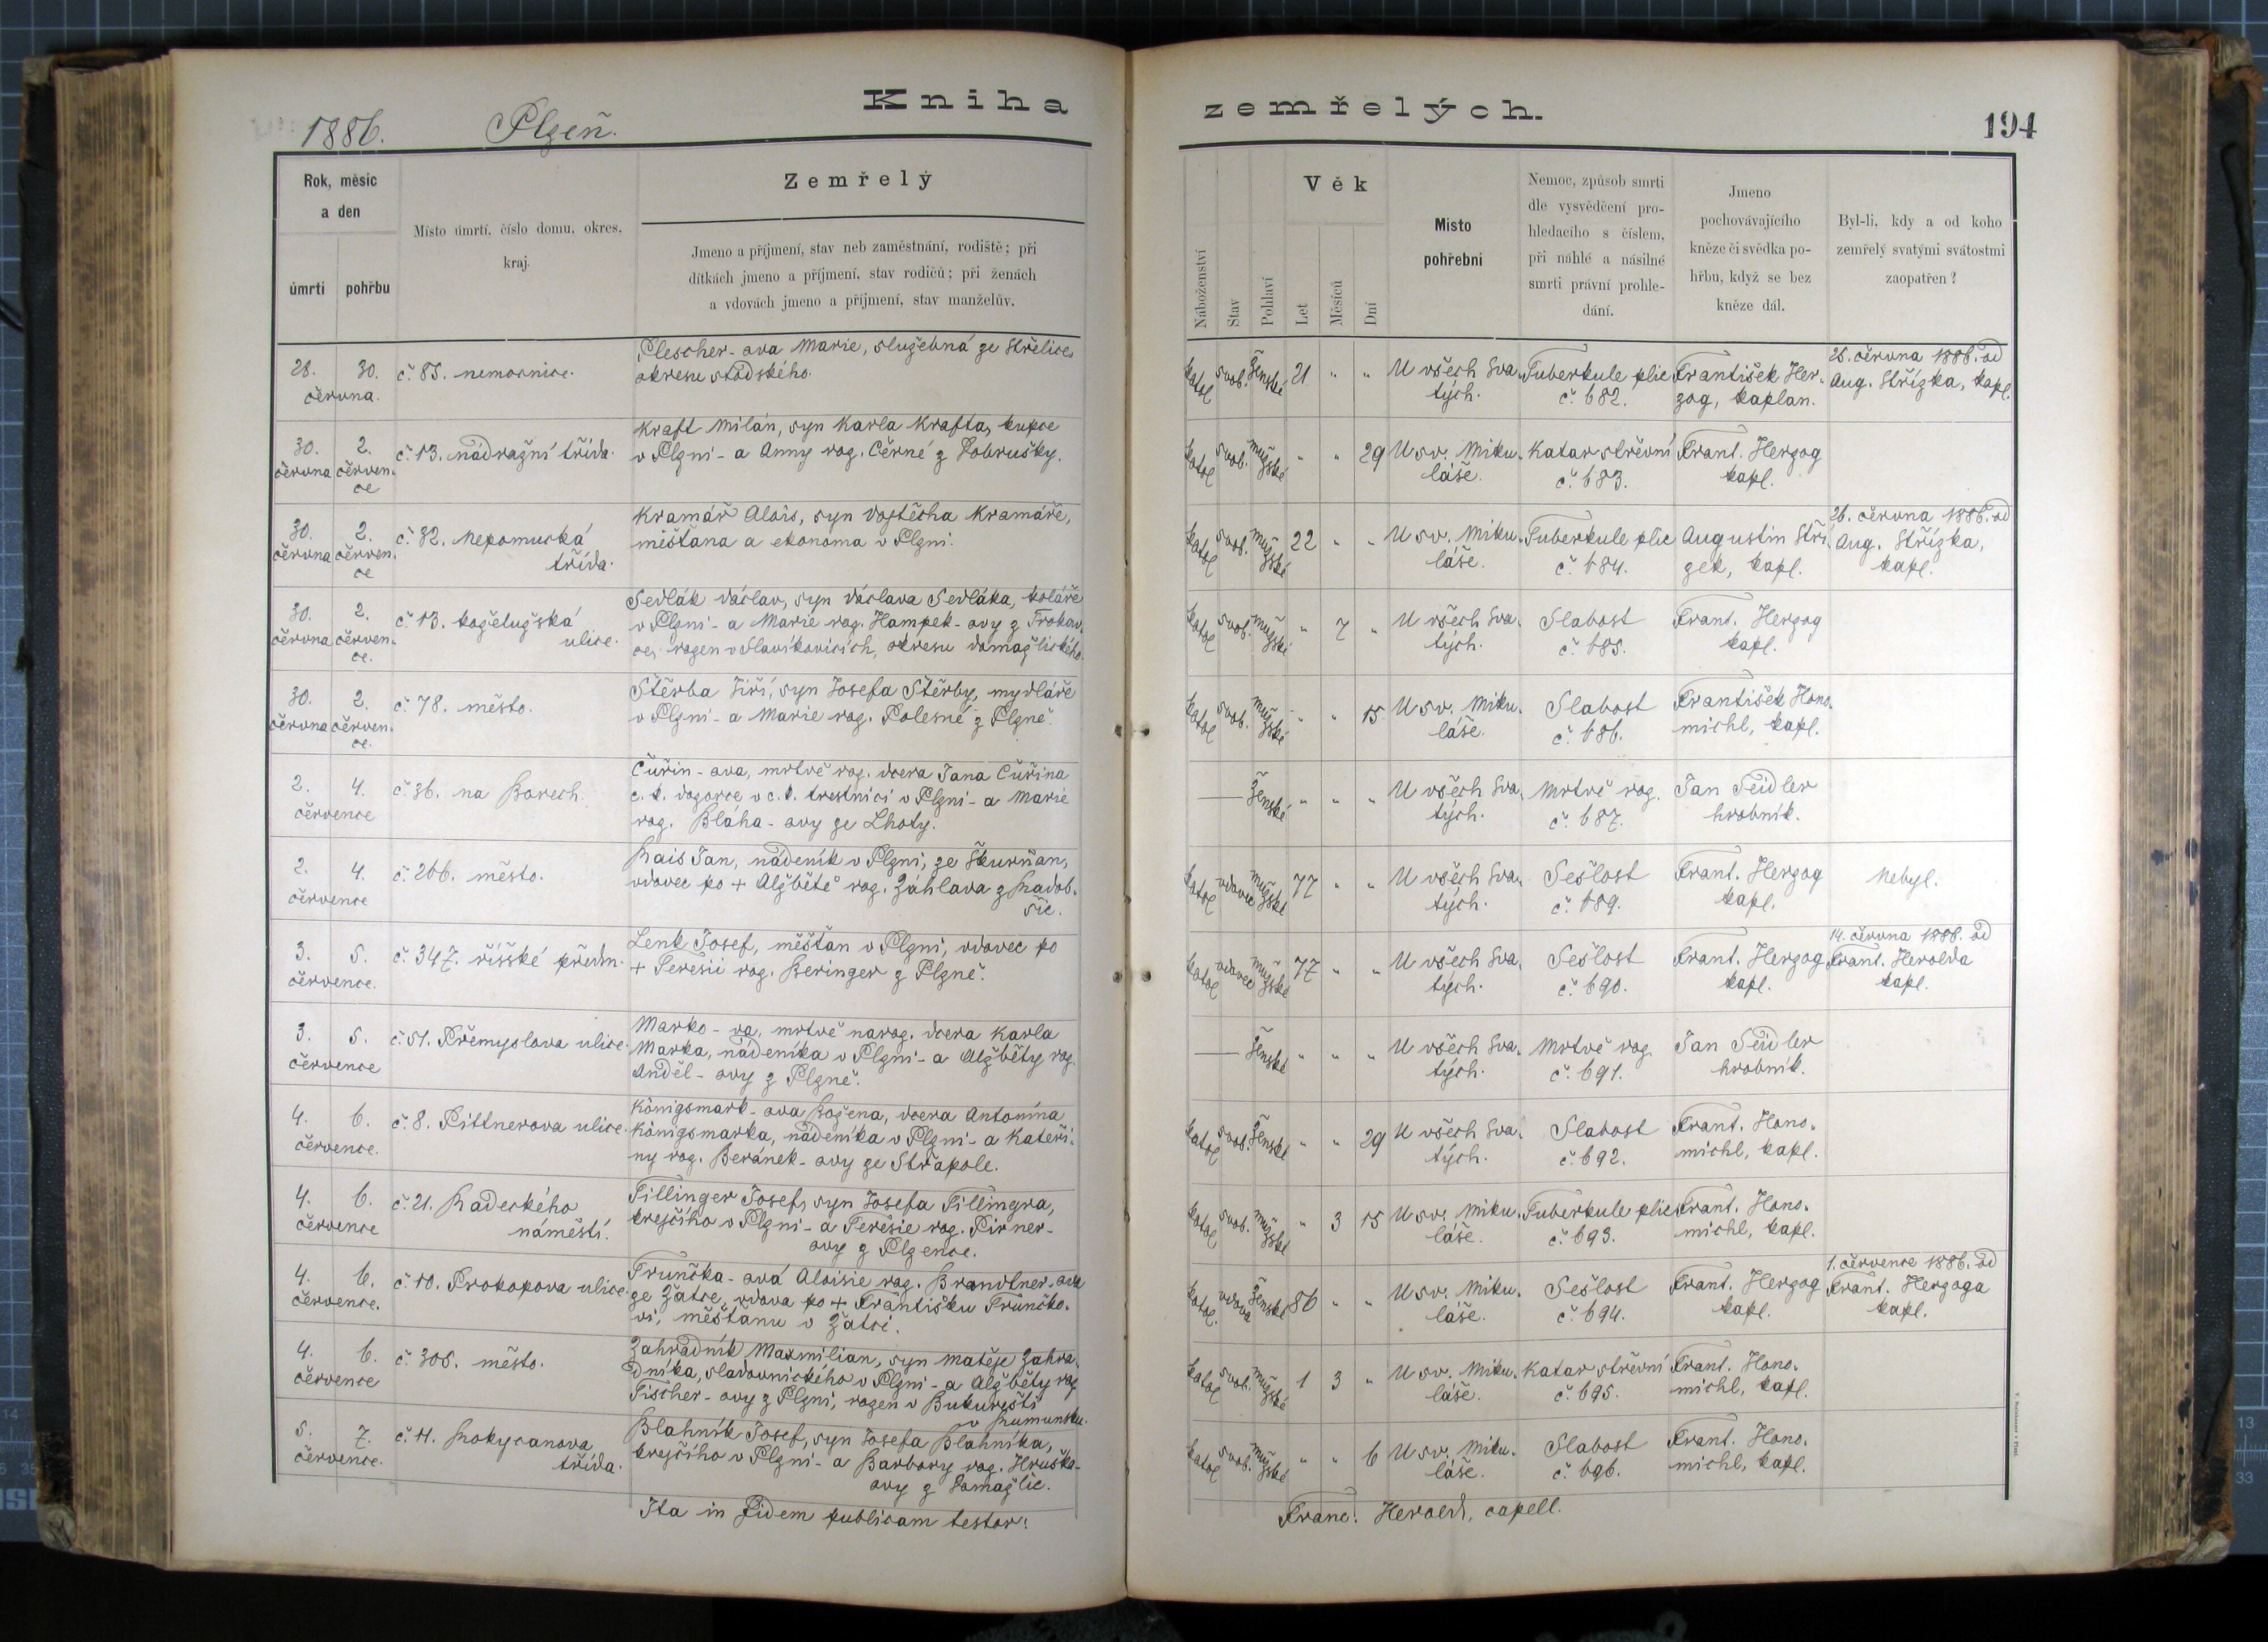 Kniha
1886. Plzeň.
Rok, měsíc
a den
úmrtí
pohřbu
Místo úmrtí, číslo domu, okres,
kraj.
Zemřelý
Jmeno a příjmení, stav neb zaměstnání, rodiště; při
dítkách jmeno a příjmení, stav rodičů; při ženách
a vdovách jmeno a příjmení, stav manželův.
28. 30.
června.
č. 85. nemocnice.
Plescher-ova Marie, služebná ze Střelice,
okresu stodského.
30. 2.
června červen-
ce
č. 13. nádražní třída.
Kraft Milán, syn Karla Krafta, kupce
v Plzni - a Anny roz. Černé z Dobrušky.
30. 2.
června červen-
ce
č. 32. Nepomucká
třída.
Kramář Alois, syn Vojtěcha Kramáře,
měšťana a ekonoma v Plzni.
30. 2.
června červen-
ce.
č. 13. koželužská
ulice.
Sedlák Václav, syn Václava Sedláka, koláře
v Plzni - a Marie roz. Hampek-ovy z
rozen v Slavíkovicích, okresu domažlického.
30. 2.
června červen-
ce.
č. 78. město.
Štěrba Jiří, syn Josefa Štěrby, mydláře
v Plzni - a Marie roz. Polesné z Plzně.
2. 4.
července
č. 36. na Borech.
Čuřin-ova, mrtvě roz. dcera Jana Čuřina
c. k. dozorce v c. k. trestnici v Plzni - a Marie
roz. Bláha-ovy ze Lhoty.
2. 4.
července
č. 206. město.
Rais Jan, nádeník v Plzni, ze Škurňan,
vdovec po + Alžbětě roz. Záhlava z Radob-
šic.
3. 5.
července.
č. 347. říšské předm.
Lenk Josef, měšťan v Plzni, vdovec po
+ Teresii roz. Beringer z Plzně.
3. 5.
července
č. 51. Přemyslova ulice.
Marko-va, mrtvě naroz. dcera Karla
Marka, nádeníka v Plzni - a Alžběty roz.
Anděl-ovy z Plzně.
4. 6.
července.
č. 8. Pittnerova ulice.
Königsmark-ova Božena, dcera Antonína
Königsmarka, nádeníka v Plzni - a Kateři-
ny roz. Beránek-ovy ze Střapole.
4. 6.
července
č. 21. Radeckého
náměstí.
Tillinger Josef, syn Josefa Tillingra,
krejčího v Plzni - a Teresie roz. Pirner-
ovy z Plzence.
4. 6.
července.
č. 10. Prokopova ulice.
Trunčka-ová Aloisie roz. Brandtner-ova
ze Žatce, vdova po + Františku Trunčko-
vi, měšťanu v Žatci.
4. 6.
července
č. 305. město.
Zahradník Maxmilian, syn Matěje Zahra-
dníka, sladovnického v Plzni - a Alžběty roz.
Fischer-ovy z Plzni, rozen v Bukurešti
v Rumunsku.
5. 7.
července.
č. 11. Rokycanova
třída.
Blahník Josef, syn Josefa Blahníka,
krejčího v Plzni - a Barbory roz. Hruška-
ovy z Domažlic.
Ita in fidem publicam testor:
zemřelých.
194
Náboženství
Stav
Pohlaví
Věk
Let
Měsíců
Dní
Místo
pohřební
Nemoc, způsob smrti
dle vysvědčení pro-
hledacího s číslem,
při náhlé a násilné
smrti právní prohle-
dání.
Jmeno
pochovávajícího
kněze či svědka po-
hřbu, když se bez
kněze dál.
Byl-li, kdy a od koho
zemřelý svatými svátostmi
zaopatřen?
katol svob. ženské 21 " " U všech Sva-
tých.
Tuberkule plic
č. 682.
František Her-
zog, kaplan.
25. června 1886. od
Aug. Střízka, kapl.
katol svob. mužské " " 29 U sv. Miku-
láše.
Katar střevní
č. 683.
Frant. Herzog
kapl.
katol svob. mužské 22 " " U sv. Miku-
láše.
Tuberkule plic
č. 684.
Augustin Stří-
zek, kapl.
26. června 1886. od
Aug. Střízka,
kapl.
katol svob. mužské " 7 " U všech Sva-
tých.
Slabost
č. 685.
Frant. Herzog
kapl.
katol svob. mužské " " 15 U sv. Miku-
láše.
Slabost
č. 686.
František Hono-
michl, kapl.
— ženské " " " U všech Sva-
tých.
Mrtvě roz.
č. 687.
Jan Seidler
hrobník.
katol vdovec mužské 77 " " U všech Sva-
tých.
Sešlost
č. 689.
Frant. Herzog
kapl.
Nebyl.
katol vdovec mužské 77 " " U všech Sva-
tých.
Sešlost
č. 690.
Frant. Herzog
kapl.
14. června 1886. od
Frant. Herolda
kapl.
— ženské " " " U všech Sva-
tých.
Mrtvě roz.
č. 691.
Jan Seidler
hrobník.
katol svob. ženské " " 29 U všech Sva-
tých.
Slabost
č. 692.
Frant. Hono-
michl, kapl.
katol svob. mužské " 3 15 U sv. Miku-
láše.
Tuberkule plic
č. 693.
Frant. Hono-
michl, kapl.
katol. vdova ženské 86 " " U sv. Miku-
láše.
Sešlost
č. 694.
Frant. Herzog
kapl.
1. července 1886. od
Frant. Herzoga
kapl.
katol svob. mužské 1 3 " U sv. Miku-
láše.
Katar střevní
č. 695.
Frant. Hono-
michl, kapl.
katol svob. mužské " " 6 U sv. Miku-
láše.
Slabost
č. 696.
Frant. Hono-
michl, kapl.
Franc. Herold, capell.